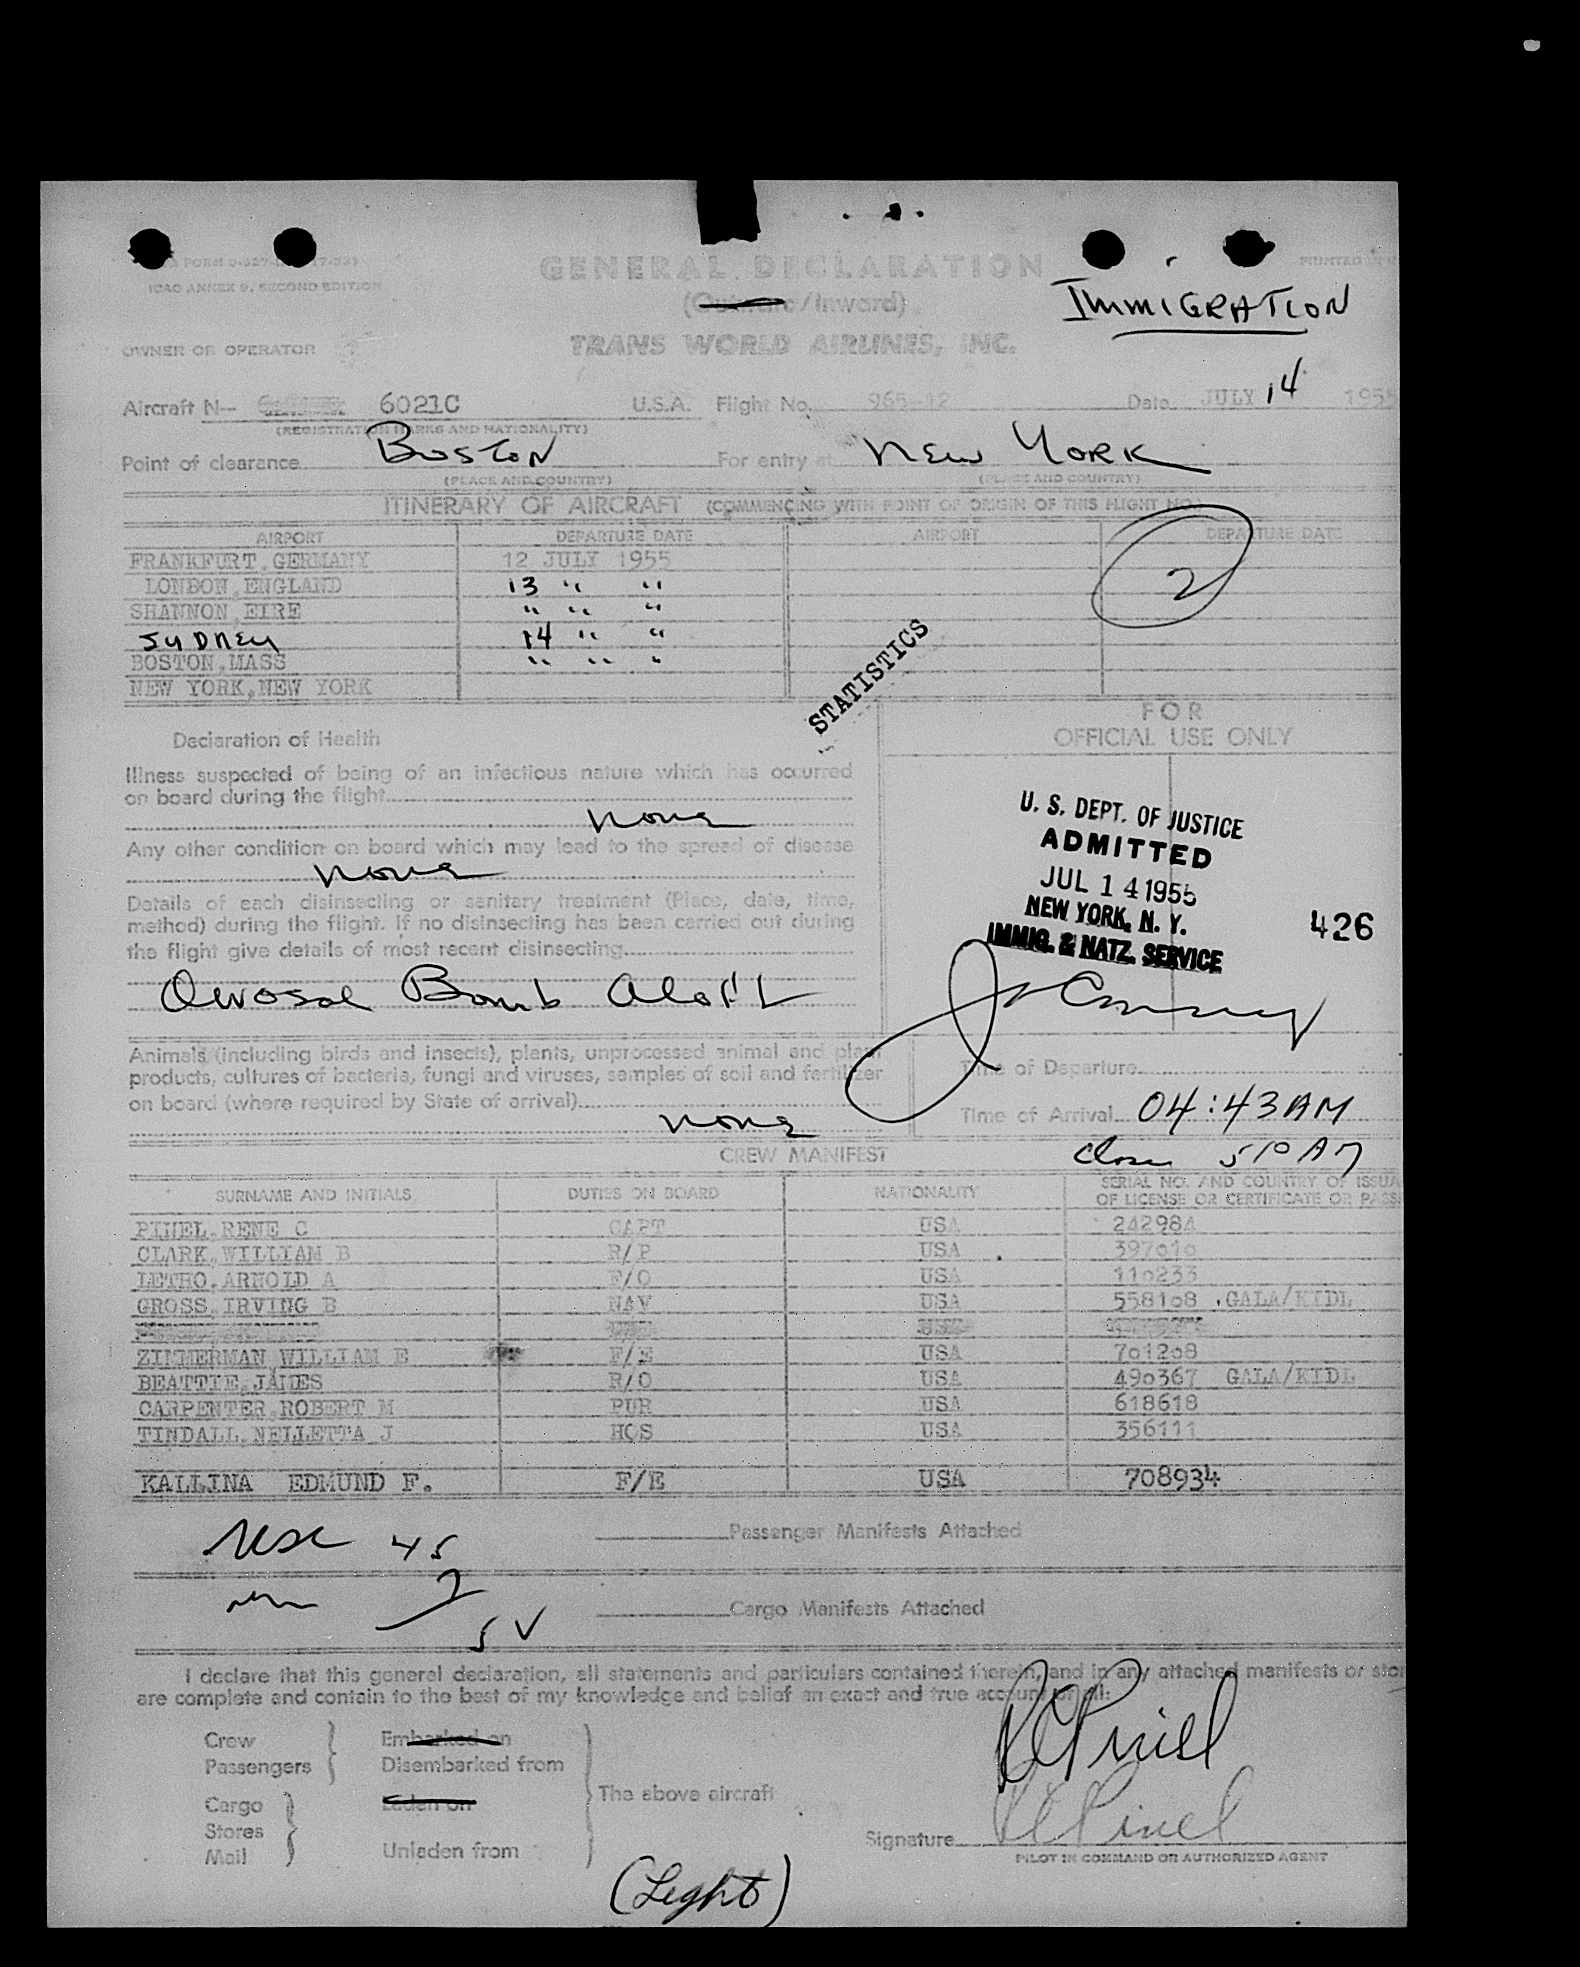 ICAO ANNEX 9, SECOND EDITION
GENERAL DECLARATION
(Outward/Inward)
IMMIGRATION
OWNER OR OPERATOR
TRANS WORLD AIRLINES, INC.
Aircraft N— 6021C U.S.A. Flight No. 965-12 Date JULY 14 1955
(REGISTRATION MARKS AND NATIONALITY)
Point of clearance Boston For entry at New York
(PLACE AND COUNTRY) (PLACE AND COUNTRY)
ITINERARY OF AIRCRAFT (COMMENCING WITH POINT OF ORIGIN OF THIS FLIGHT NO.)
AIRPORT DEPARTURE DATE AIRPORT DEPARTURE DATE
FRANKFURT,GERMANY 12 JULY 1955
LONDON,ENGLAND 13 " "
2
SHANNON,EIRE " " "
SYDNEY 14 " "
BOSTON,MASS " " "
NEW YORK,NEW YORK
STATISTICS
FOR
OFFICIAL USE ONLY
Declaration of Health
Illness suspected of being of an infectious nature which has occurred
on board during the flight
none
Any other condition on board which may lead to the spread of disease
none
Details of each disinsecting or sanitary treatment (Place, date, time,
method) during the flight. If no disinsecting has been carried out during
the flight give details of most recent disinsecting
Bomb
U. S. DEPT. OF JUSTICE
ADMITTED
JUL 14 1955
NEW YORK, N. Y.
IMMIG. & NATZ. SERVICE
426
Animals (including birds and insects), plants, unprocessed animal and plant
products, cultures of bacteria, fungi and viruses, samples of soil and fertilizer
on board (where required by State of arrival)
none
Time of Departure
Time of Arrival 04:43 AM
510 AM
CREW MANIFEST
SURNAME AND INITIALS DUTIES ON BOARD NATIONALITY SERIAL NO. AND COUNTRY OF ISSUA
OF LICENSE OR CERTIFICATE OR PASS
PINEL,RENE C CAPT USA 242984
CLARK,WILLIAM B R/P USA 397010
LETHO,ARNOLD A F/O USA 110233
GROSS,IRVING B NAV USA 558108 GALA/KIDL
ZIMMERMAN,WILLIAM E F/E USA 701208
BEATTIE,JAMES R/O USA 490367 GALA/KIDL
CARPENTER,ROBERT M PUR USA 618618
TINDALL,NELLETTA J HOS USA 356111
KALLINA EDMUND F. F/E USA 708934
45
Passenger Manifests Attached
2
Cargo Manifests Attached
I declare that this general declaration, all statements and particulars contained therein, and in any attached manifests or stor
are complete and contain to the best of my knowledge and belief an exact and true account of all:
Crew
Passengers
Embarked on
Disembarked from
Cargo
Stores
Mail
Laden on
Unladen from
The above aircraft
R C Pinel
Signature R C Pinel
PILOT IN COMMAND OR AUTHORIZED AGENT
(Light)